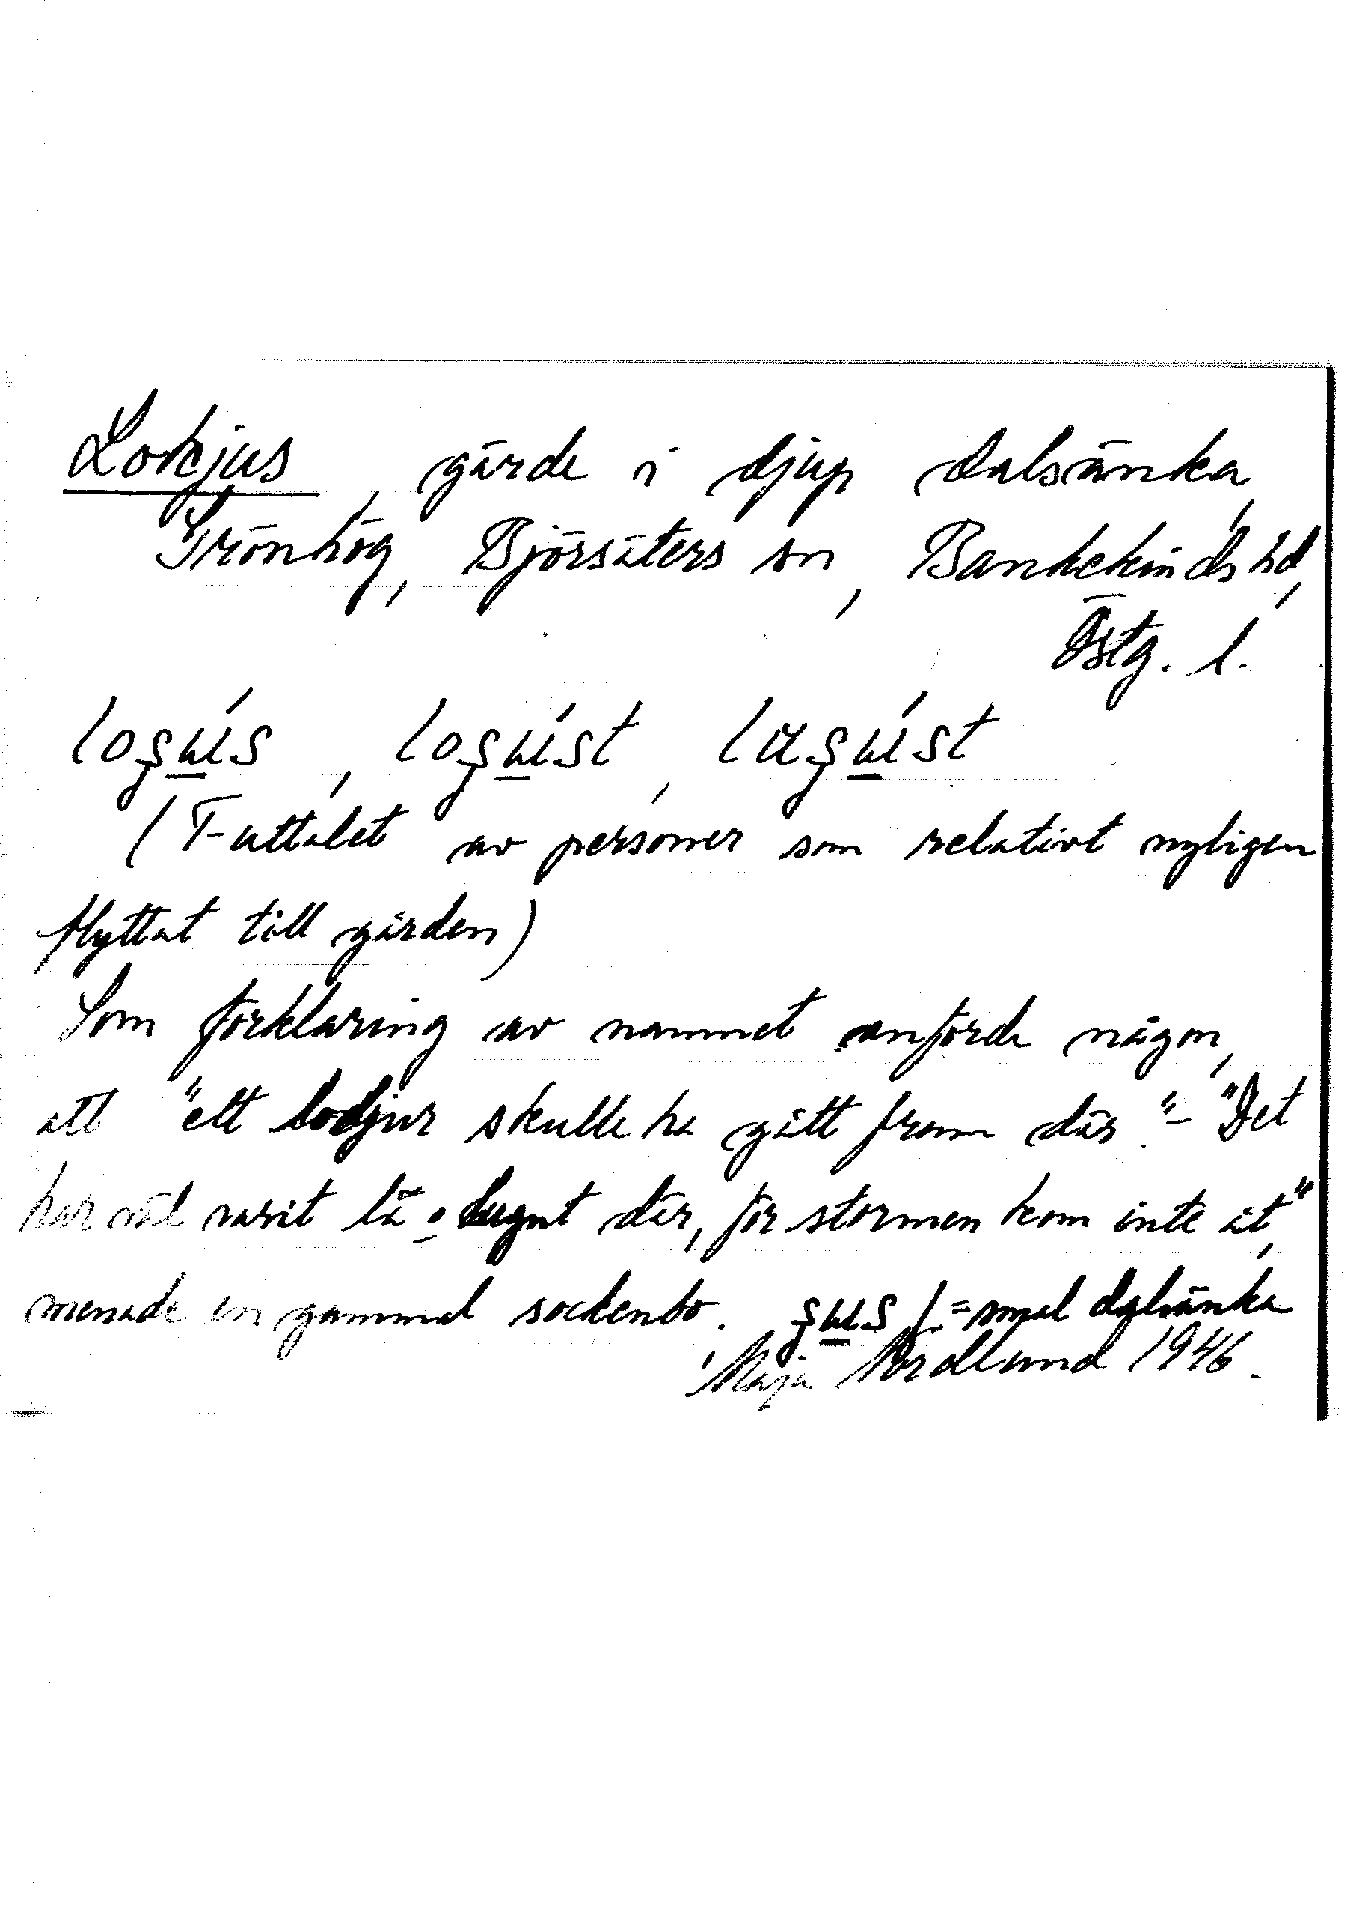 Lokjus, gärde i djup dalsänka,
Grönhög, Björsäters sn, Bankekinds hd,
Östg. l.
(T-uttalet av personer som relativt nyligen
flyttat till gården)
Som förklaring av namnet anförde någon,
att "ett lodjur skulle ha gått fram där." - "Det
har väl varit lä o lugnt där, för stormen kom inte åt,"
menade en gammal sockenbo. f. = smal dalsänka
Maja Nordlund 1946.